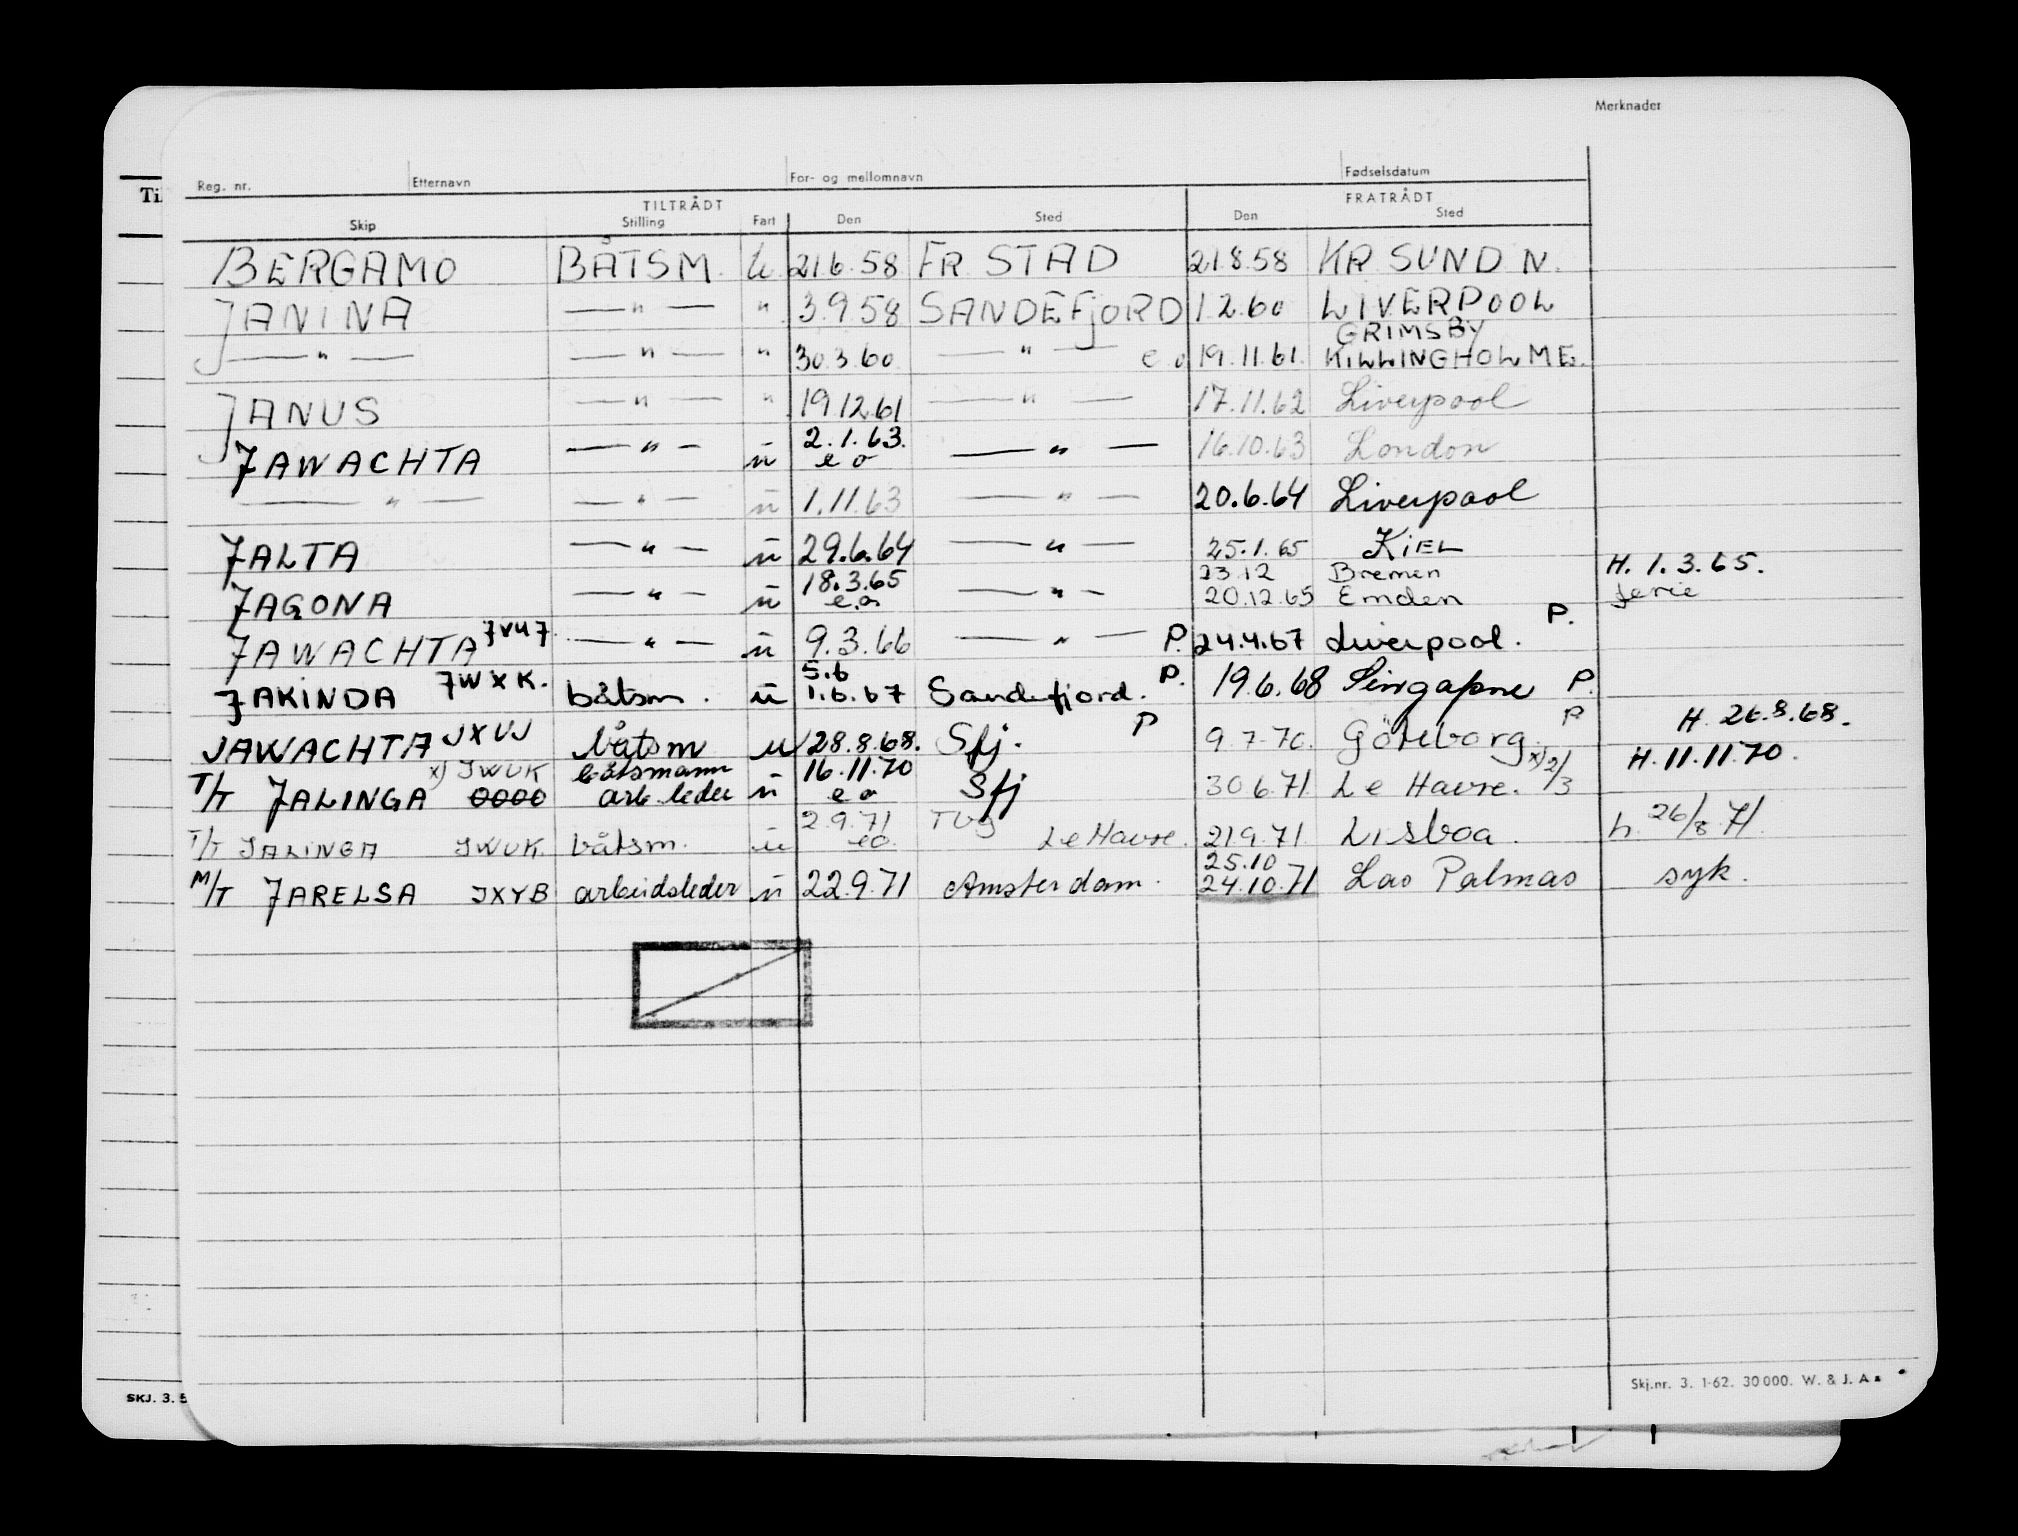 Merknader
Reg. nr. Etternavn For- og mellomnavn Fødselsdatum
Til
TILTRÅDT FRATRÅDT
Skip Stilling Fart Den Sted Den Sted
BERGAMO BÅTSM. u. 21.6.58 FR.STAD 21.8.58 KR.SUND N.
JANINA — " — " 3.9.58 SANDEFJORD 1.2.60 LIVERPOOL
GRIMSBY
— " — — " — " 30.3.60 — " — e o 19.11.61. KILLINGHOLME.
JANUS — " — " 19.12.61 — " — 17.11.62 Liverpool
2.1.63.
JAWACHTA — " — u e o — " — 16.10.63 London
— " — — " — u 1.11.63 — " — 20.6.64 Liverpool
JALTA — " — u 29.6.64 — " — 25.1.65 KIEL
18.3.65 23.12 Bremen H. 1.3.65.
JAGONA — " — u e.o — " — 20.12.65 Emden ferie
JAWACHTA JVU7 — " — u 9.3.66 — " — P. 24.4.67 Liverpool. P.
5.6
JAKINDA JWXK. båtsm. u 1.6.67 Sandefjord. P. 19.6.68 Singapore P.
H. 26.8.68.
JAWACHTA JXVJ båtsm u 28.8.68. Sfj. P 9.7.70. Göteborg. P
x) JWUK båtsmann 16.11.70 x) 2/3 H.11.11.70.
T/T JALINGA 0000 arb.leder u e o Sfj 30.6.71. Le Havre.
2.9.71
T/T JALINGA JWUK båtsm. u eo Le Havre. 21.9.71. Lisboa. h. 26/8 71.
25.10
M/T JARELSA JXYB arbeidsleder u 22.9.71 Amsterdam. 24.10.71 Las Palmas syk.
SKJ. 3. 5
Skj.nr. 3. 1-62. 30 000. W. & J. A